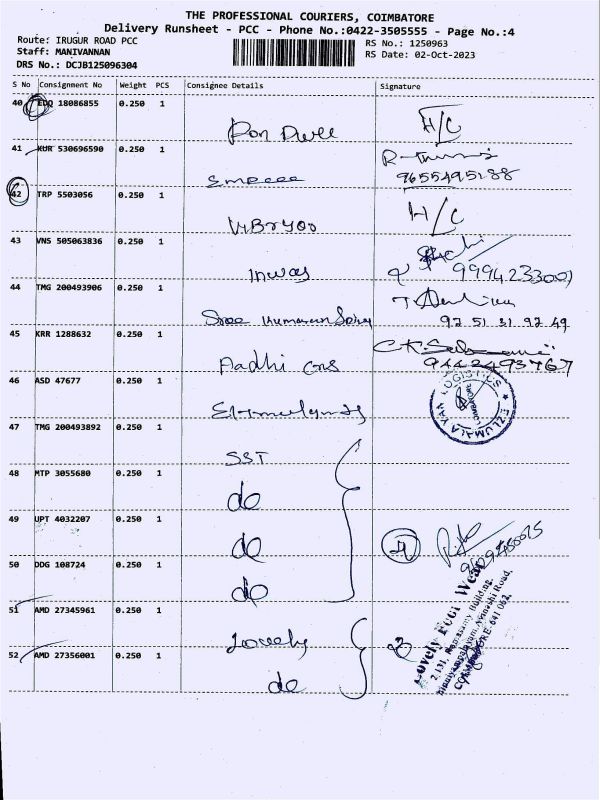 THE PROFESSIONAL COURIERS, COIMBATORE
Delivery Runsheet - PCC - Phone No.:0422-3505555 - Page No.:4
Route: IRUGUR ROAD PCC
RS No.: 1250963
Staff: MANIVANNAN
RS Date: 02-Oct-2023
DRS No.: DCJB125096304
S No Consignment No Weight PCS Consignee Details Signature
40 EDQ 18086855 0.250 1
H/C
41 KUR 530696590 0.250 1
9655495188
42 TRP 5503056 0.250 1
H/C
43 VNS 505063836 0.250 1
44 TMG 200493906 0.250 1
Sree Kumaran
92 51 31 92 49
45 KRR 1288632 0.250 1
Aadhi
9442493467
46 ASD 47677 0.250 1
EZLUMALAYAN LOGISTICS
47 TMG 200493892 0.250 1
SST
48 MTP 3055680 0.250 1
do
49 UPT 4032207 0.250 1
do
4
50 DDG 108724 0.250 1
do
51 AMD 27345961 0.250 1
Lovely
52 AMD 27356001 0.250 1
do
2
Lovely Foot Wear
2.131, Ramasamy Building,
Avinashi Road,
COIMBATORE-641 062.